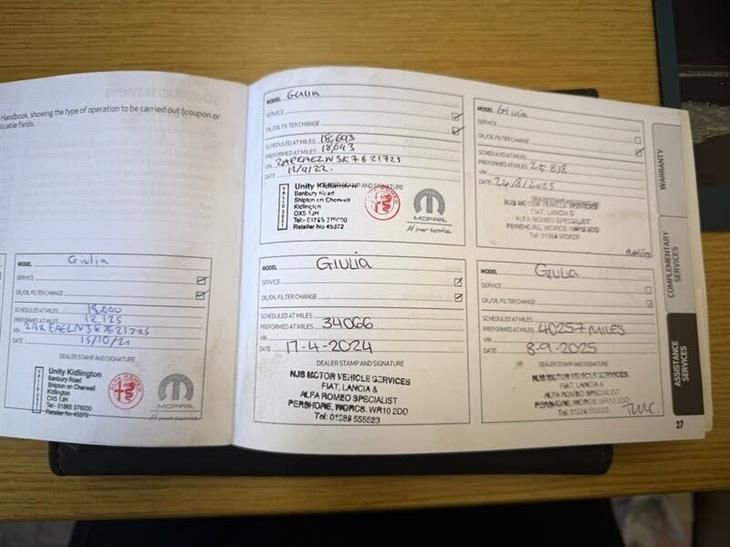 SCHEDULED SERVICES
Handbook, showing the type of operation to be carried out (coupon or
icable fields.
MODEL Giulia
SERVICE
OIL/OIL FILTER CHANGE
SCHEDULED AT MILES 18,000
PREFORMED AT MILES 12,125
VIN
DATE 15/10/21
DEALER STAMP AND SIGNATURE
Unity Kidlington
Banbury Road
Shipton on Cherwell
Kidlington
OX5 1JH
Tel:- 01865 376000
Retailer No 45372
MOPAR
MODEL Giulia
SERVICE
OIL/OIL FILTER CHANGE
SCHEDULED AT MILES 18,693
PREFORMED AT MILES 18,693
VIN
DATE 12/9/22
DEALER STAMP AND SIGNATURE
VALID 2021
Unity Kidlington
Banbury Road
Shipton on Cherwell
Kidlington
OX5 1JH
Tel:- 01865 376000
Retailer No 45372
MOPAR
At your service
MODEL Giulia
SERVICE
OIL/OIL FILTER CHANGE
SCHEDULED AT MILES
PREFORMED AT MILES 25,838
VIN
DATE 24/8/2023
DEALER STAMP AND SIGNATURE
NJS MOTOR VEHICLE SERVICES
FIAT, LANCIA &
ALFA ROMEO SPECIALIST
PERSHORE, WORCS. WR10 2DD
Tel: 01386 555523
MODEL GIULIA
SERVICE
OIL/OIL FILTER CHANGE
SCHEDULED AT MILES
PREFORMED AT MILES 34066
VIN
DATE 17-4-2024
DEALER STAMP AND SIGNATURE
NJS MOTOR VEHICLE SERVICES
FIAT, LANCIA &
ALFA ROMEO SPECIALIST
PERSHORE, WORCS. WR10 2DD
Tel: 01386 555523
MODEL GIULIA
SERVICE
OIL/OIL FILTER CHANGE
SCHEDULED AT MILES
PREFORMED AT MILES 40257 MILES
VIN
DATE 8-9-2025
DEALER STAMP AND SIGNATURE
NJS MOTOR VEHICLE SERVICES
FIAT, LANCIA &
ALFA ROMEO SPECIALIST
PERSHORE, WORCS. WR10 2DD
Tel: 01386 555523
WARRANTY
COMPLEMENTARY
SERVICES
ASSISTANCE
SERVICES
27